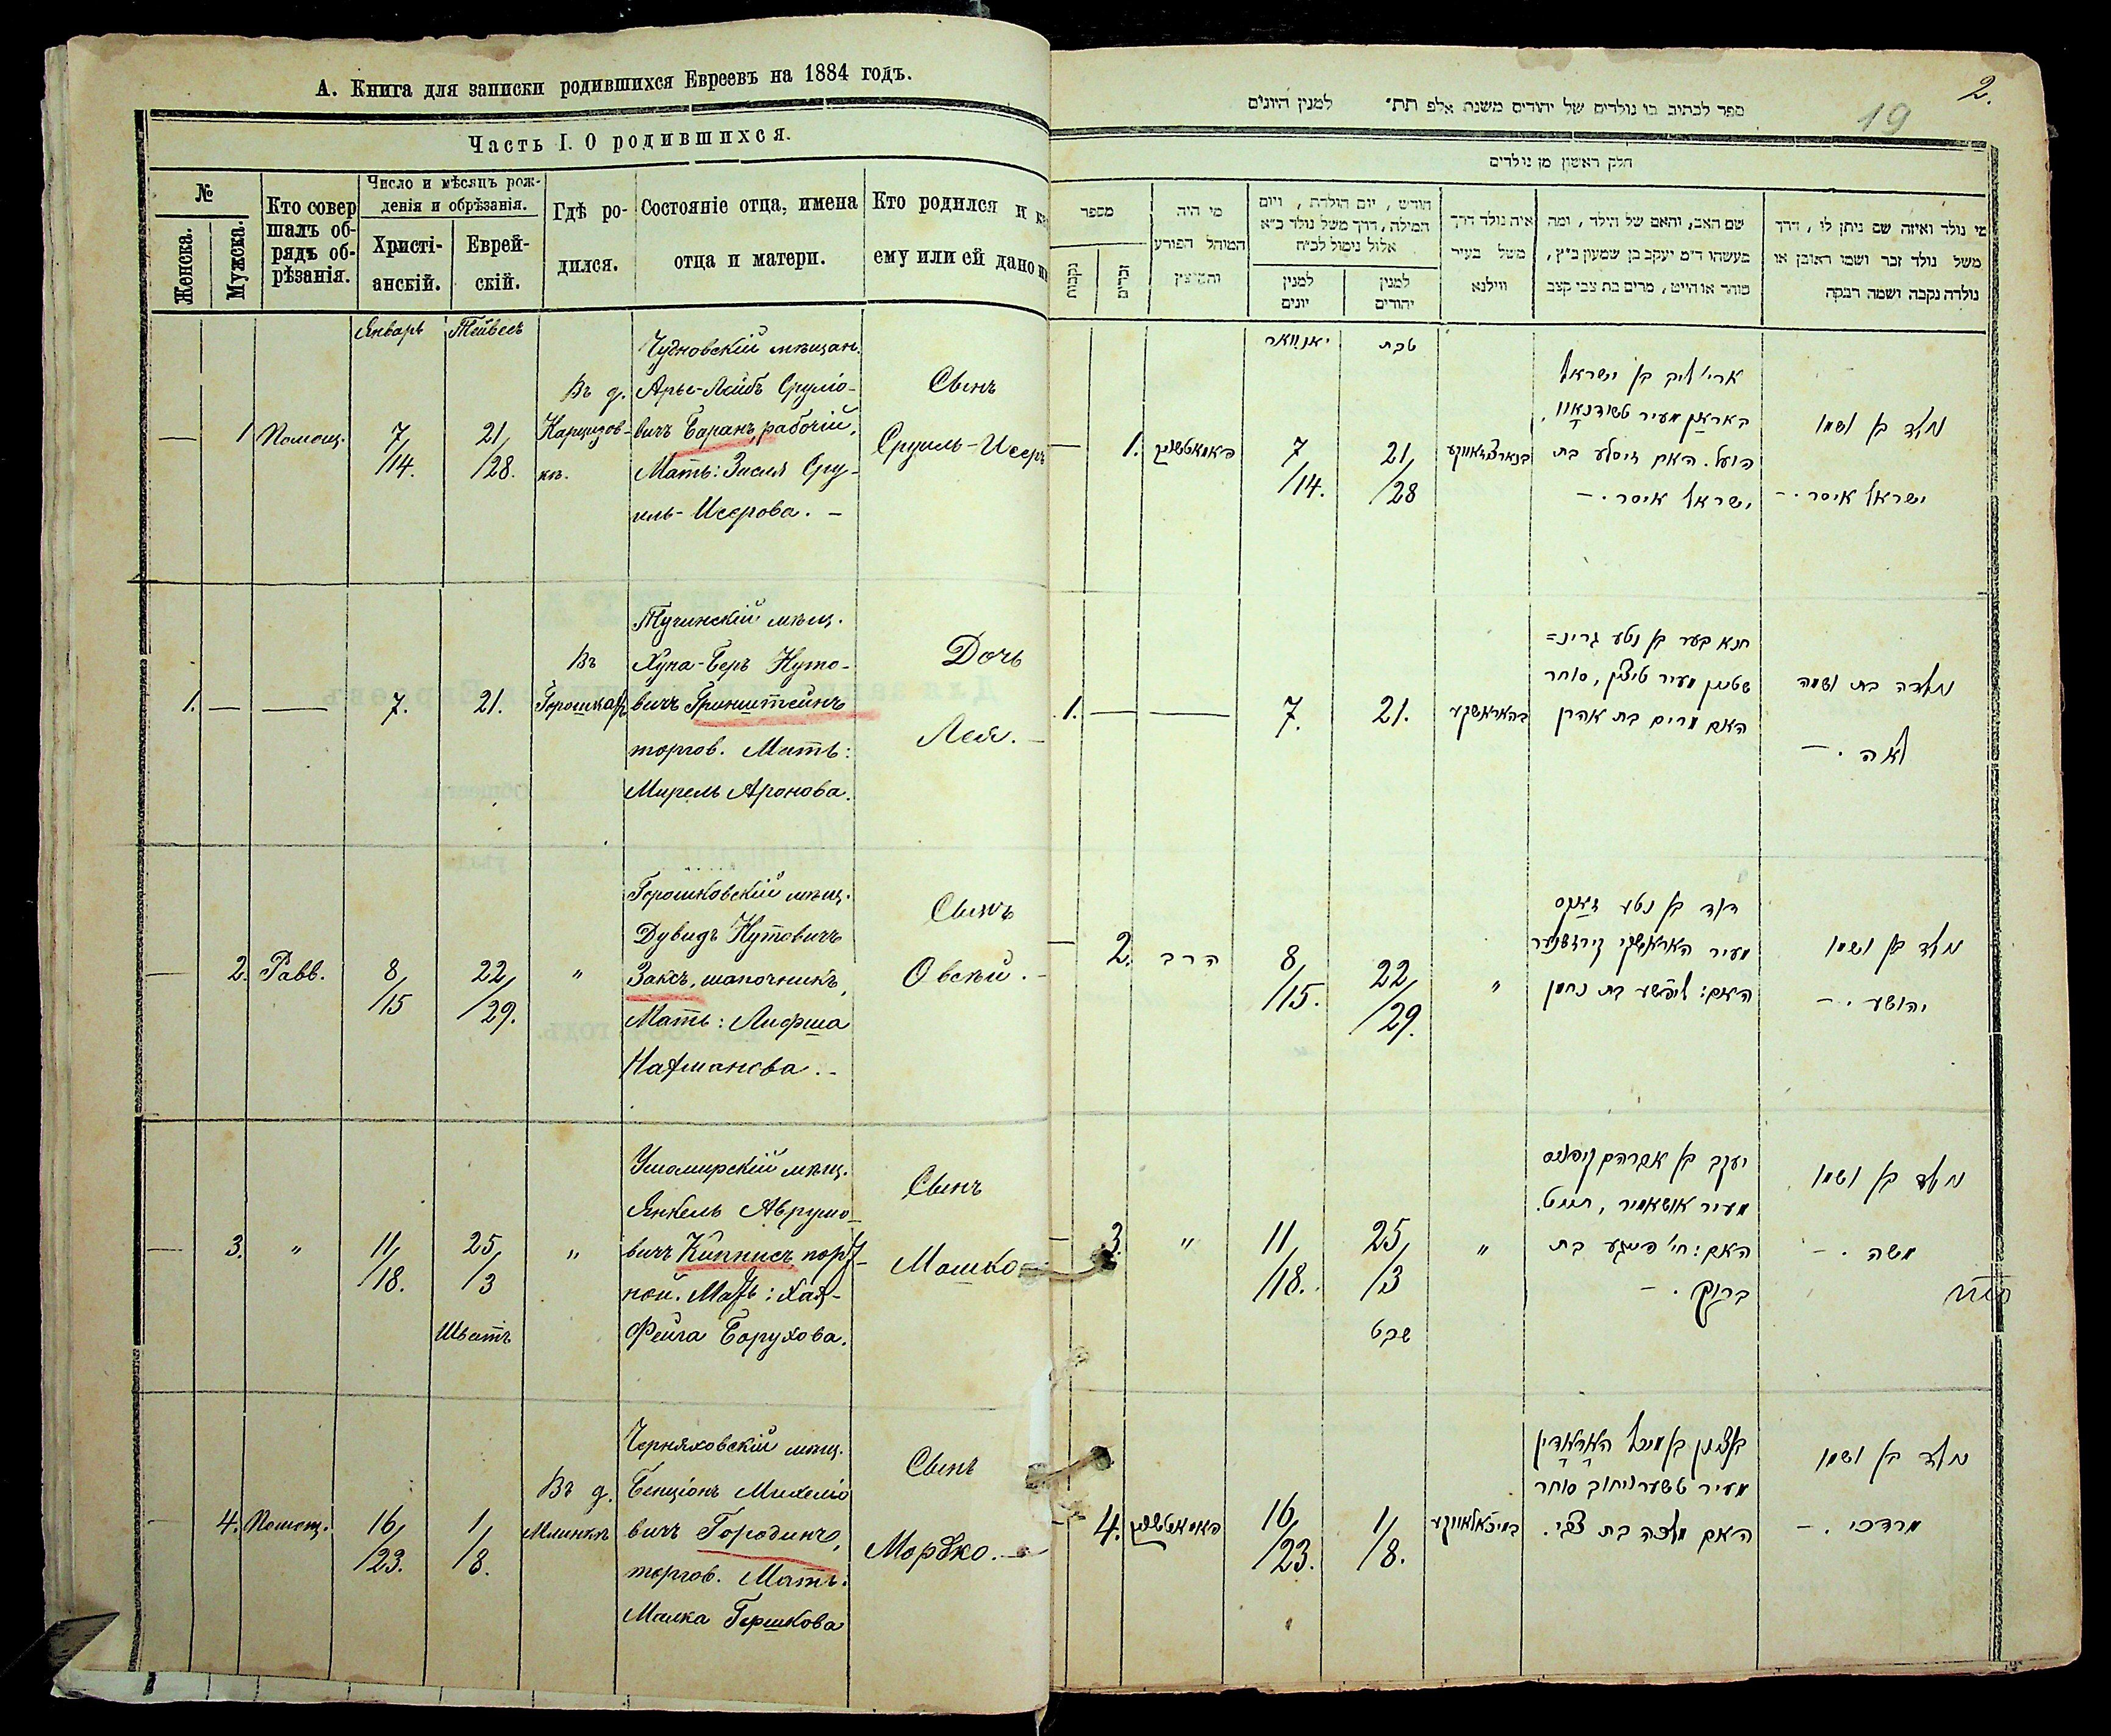 А. Книга для записки родившихся Евреевъ на 1884 годъ.
Часть I. О родившихся.
№
Женска.
Мужска.
Кто совер
шалъ об-
рядъ об-
рѣзанія.
Число и мѣсяцъ рож-
денія и обрѣзанія.
Христі-
анскій.
Еврей-
скій.
Гдѣ ро-
дился.
Состояніе отца, имена
отца и матери.
Кто родился и ка
ему или ей дано и
Январь
Тейвесъ
— 1 Помощ.
7/
/14.
21/
/28.
Въ д.
Чудновскій мѣщан.
Арье-Лейбъ Сруліо-
вичъ Баранъ, рабочій,
Мать: Зисля Сру-
иль-Исерова. –
Сынъ
Сруиль-Исеръ
1. — —
7.
21.
Въ
Горошкахъ
Тучинскій мѣщ.
Хуна-Беръ Нуто-
вичъ Гринштейнъ
торгов. Мать:
Мирель Аронова.
Дочь
Лея. –
— 2. Равв.
8/
/15
22/
/29.
"
Горошковскій мѣщ.
Дувидъ Нутовичъ
Заксъ, шапочникъ,
Мать: Лифша
Нахманова. –
Сынъ
Овсѣй. –
— 3. "
11/
/18.
25/
/3
Шватъ
"
Ушомирскій мѣщ.
Янкель Аврумо-
вичъ Кипписъ, порт-
ной. Мать: Хая-
Фейга Борухова.
Сынъ
Мошко
4. Помощ.
16/
/23.
1/
/8.
Въ д.
Черняховскій мѣщ.
Бенціонъ Михеліо
вичъ Городинъ,
торгов. Мать:
Малка Гершкова
Сынъ
Мордко. –
2.
19
ספר לכתוב בו נולדים של יהודים משנת אלפ תת״ למנין היונים
חלק ראשון מן נולדים
מספר
נקבות
זכרים
מי היה
המוהל הפורע
והמוצץ
חודש, יום הולדת, ויום
המילה, דרך משל נולד כ״א
אלול נימול לכ״ח
למנין
יונים
למנין
יהודים
איה נולד דרך
משל בעיר
ווילנא
שם האב, והאם של הילד, ומה
מעשהו ד״מ יעקב בן שמעון כ״ץ,
סוחר או חייט, מרים בת צבי קצב
מי נולד ואיזה שם ניתן לו, דרך
משל נולד זכר ושמו ראובן או
נולדה נקבה ושמה רבקה
יאנוואר
טבת
— 1.
7/
/14.
21/
/28
ארי׳ ליב בן ישראל
באראן מעיר טשודנאוו,
פועל. האם זיסלע בת
ישראל איסר. –
נולד בן ושמו
ישראל איסר. –
1. — —
7.
21.
בהאראשקע
חנא בער בן נטע גרינ=
שטיין מעיר טיצין, סוחר
האם מרים בת אהרן
נולדה בת ושמה
לאה. –
— 2. הרב
8/
/15.
22/
/29.
"
דוד בן נטע זאקס
מעיר האראשקי קירזשנער
האם: ליפשע בת נחמן
נולד בן ושמו
יהושע. –
— 3. "
11/
/18.
25/
/3
שבט
"
יעקב בן אברהם קיפניס
מעיר אושאמיר, חייט.
האם: חי׳ פייגע בת
ברוך. –
נולד בן ושמו
משה. –
4.
16/
/23.
1/
/8.
בנציון בן מיכל האראדין
מעיר טשערניחוב סוחר
האם מלכה בת צבי.
נולד בן ושמו
מרדכי. –